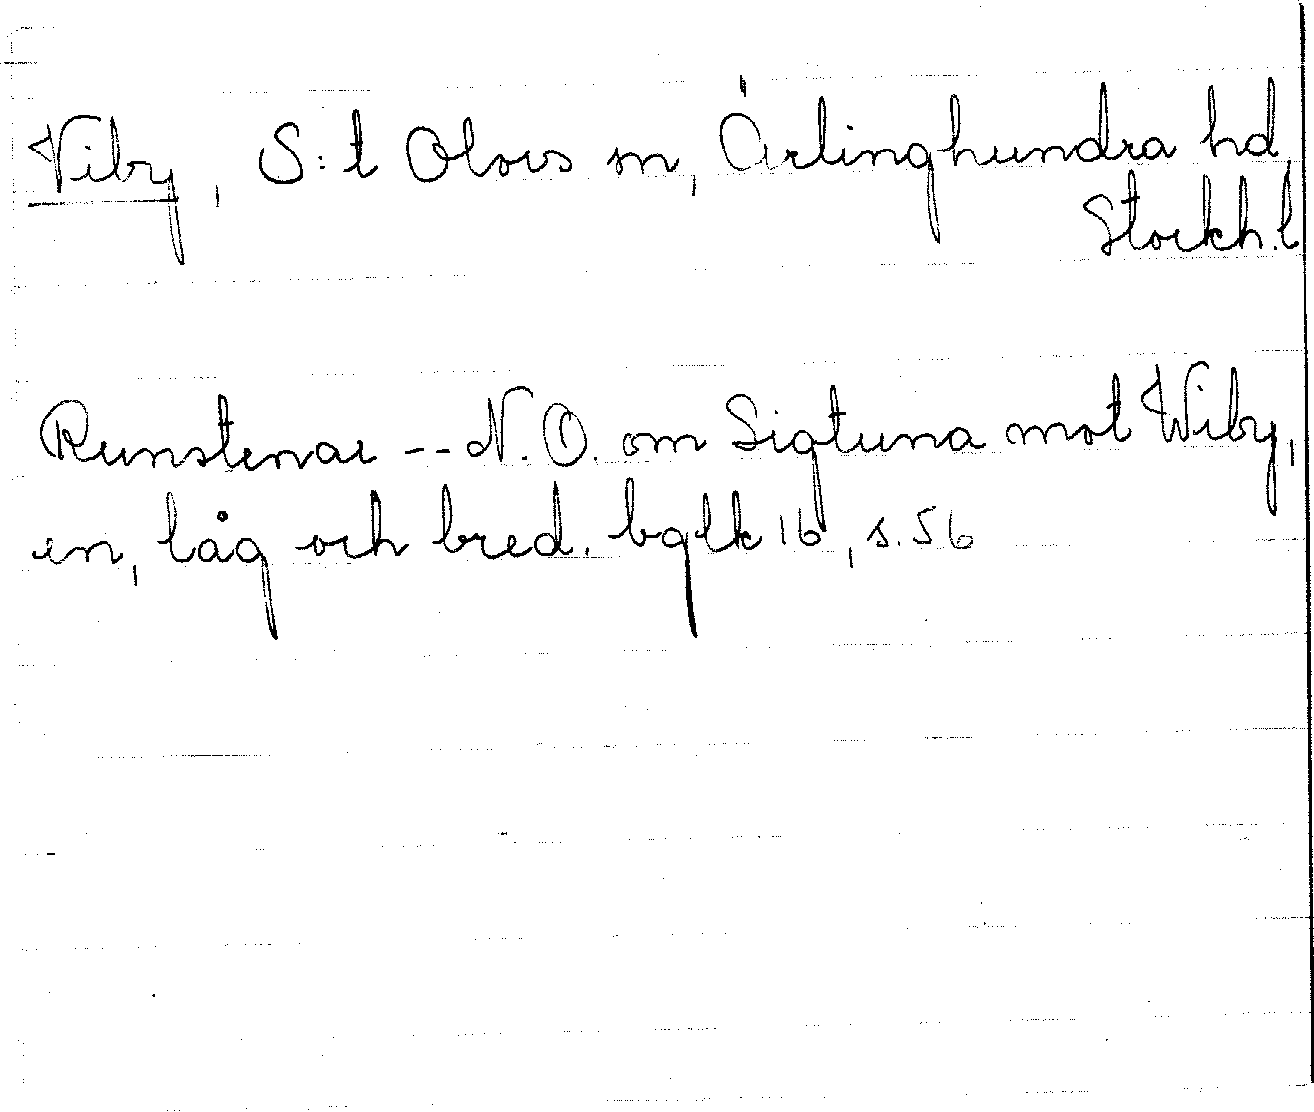 Viby, S:t Olovs sn, Ärlinghundra hd,
Stockh. l
Runstenar -- N.O. om Sigtuna mot Wiby,
en, låg och bred. bglk 16, s. 56